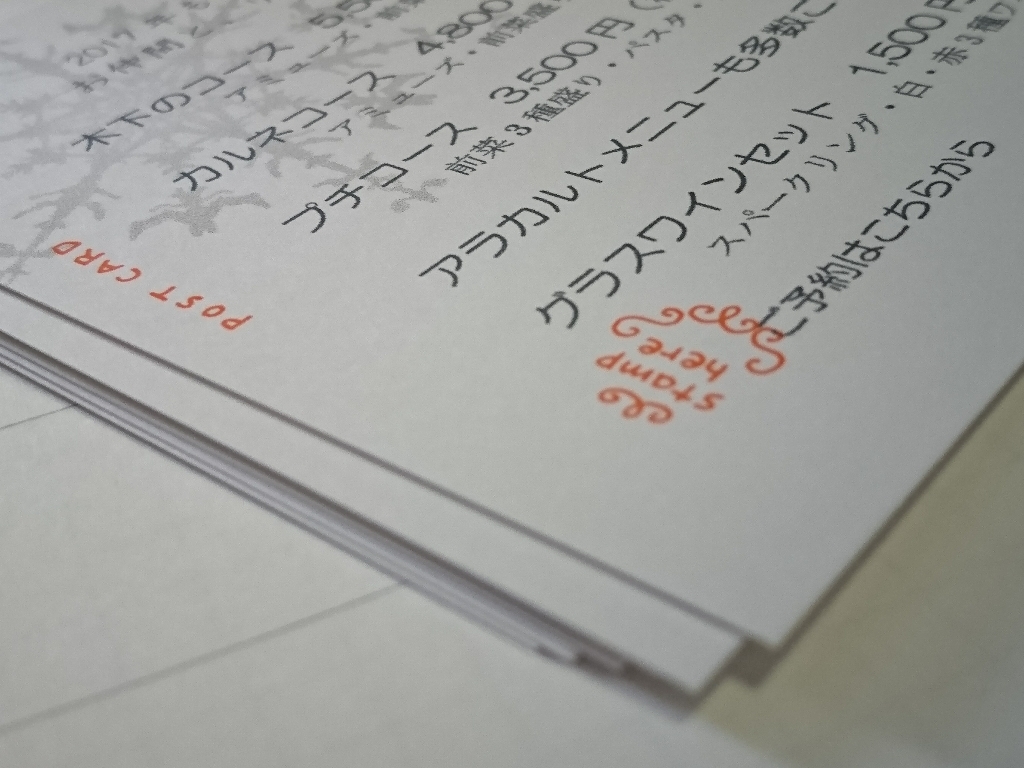 2017年
木下のコース 55
アミューズ・前菜
カルネコース 4,800
アミューズ・前菜
プチコース 3,500円
前菜3種盛り・パスタ・
アラカルトメニューも多数ご
グラスワインセット 1,500円
スパークリング・白・赤3種
ご予約はこちらから
POST CARD
stamp
here